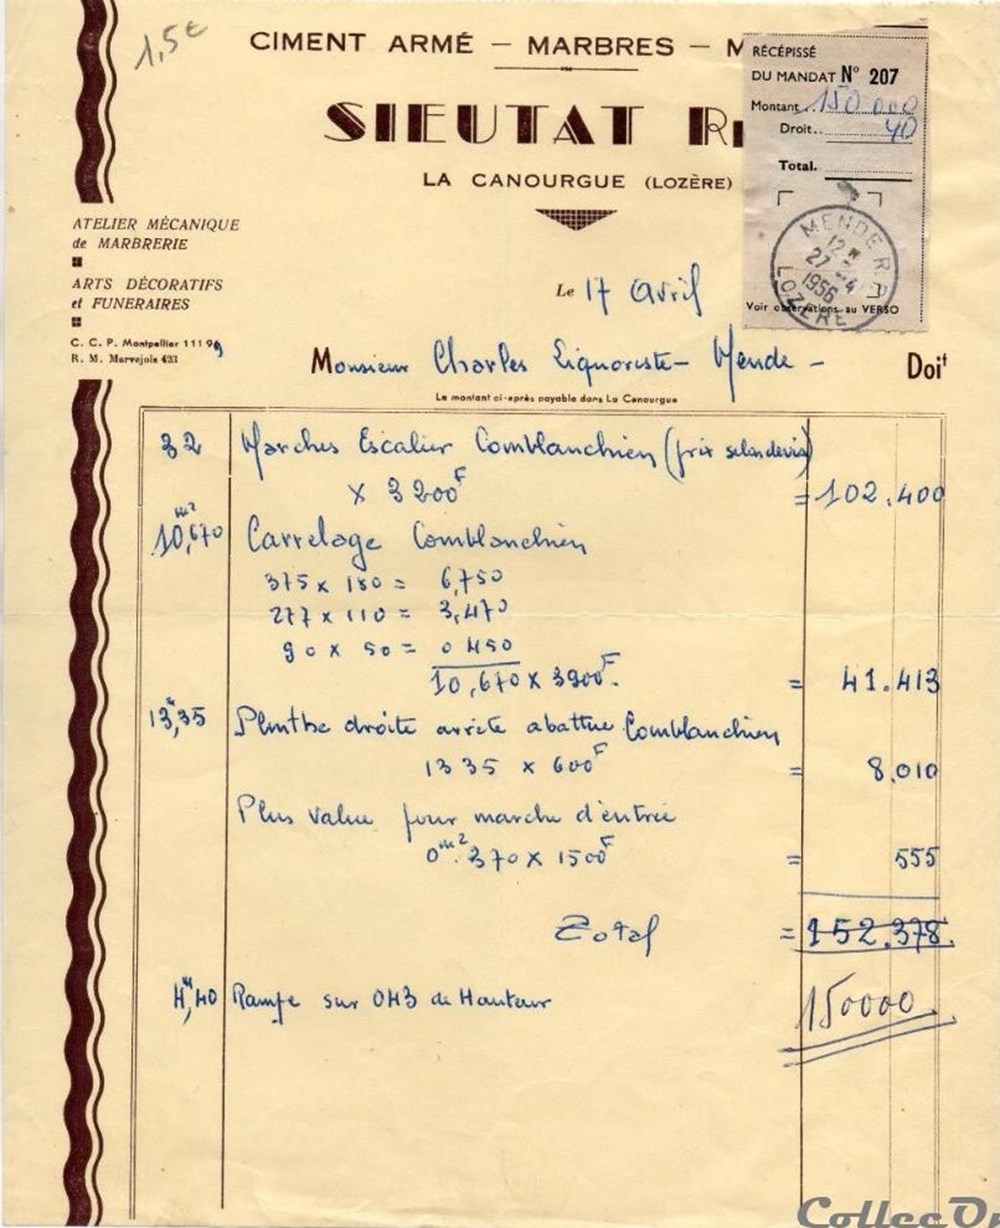 1,5€
CIMENT ARMÉ — MARBRES — M
SIEUTAT R
LA CANOURGUE (LOZÈRE)
RÉCÉPISSÉ
DU MANDAT N° 207
Montant 150 000
Droit.. 40
Total.
MENDE R.P.
12 H
27 - 4
1956
LOZERE
Voir observations au VERSO
ATELIER MÉCANIQUE
de MARBRERIE
ARTS DÉCORATIFS
et FUNERAIRES
C. C. P. Montpellier 111 99
R. M. Marvejols 433
Le 17 Avril
Monsieur Charles Liquoriste - Mende - Doit
Le montant ci-après payable dans La Canourgue
32 Marches Escalier Comblanchien (prix selon devis)
x 3200F = 102.400
10,670 m2 Carrelage Comblanchien
375 x 180 = 6,750
277 x 110 = 3,470
90 x 50 = 0 450
10,670 x 3900F. = 41.413
13m,35 Plinthe droite arrête abattue Comblanchien
13 35 x 600F = 8.010
Plus value pour marche d'entrée
0m2.370 x 1500F = 555
Total = 152.378.
4m,40 Rampe sur 0M3 de Hauteur
150000
CollecOn